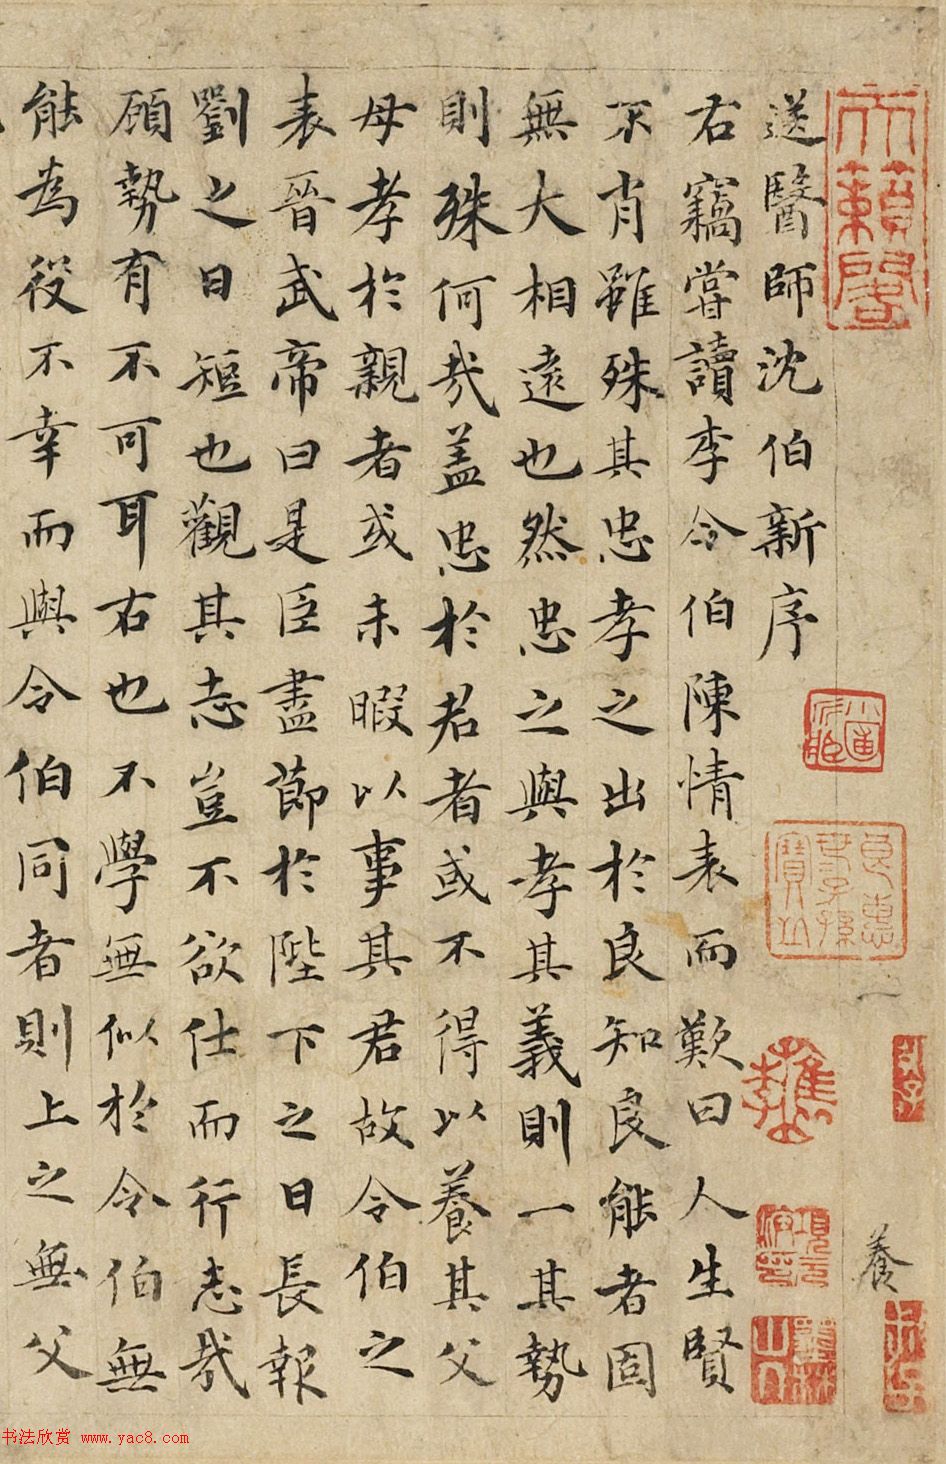 送醫師沈伯新序
右竊嘗讀李令伯陳情表而歎曰人生賢
不肖雖殊其忠孝之出於良知良能者固
無大相遠也然忠之與孝其義則一其勢
則殊何哉蓋忠於君者或不得以養其父
母孝於親者或未暇以事其君故令伯之
表晉武帝曰是臣盡節於陛下之日長報
劉之日短也觀其志豈不欲仕而行志哉
顧勢有不可耳右也不學無似於令伯無
能為役不幸而與令伯同者則上之無父
養
天籟閣
項元汴印
墨林山人
书法欣赏 www.yac8.com